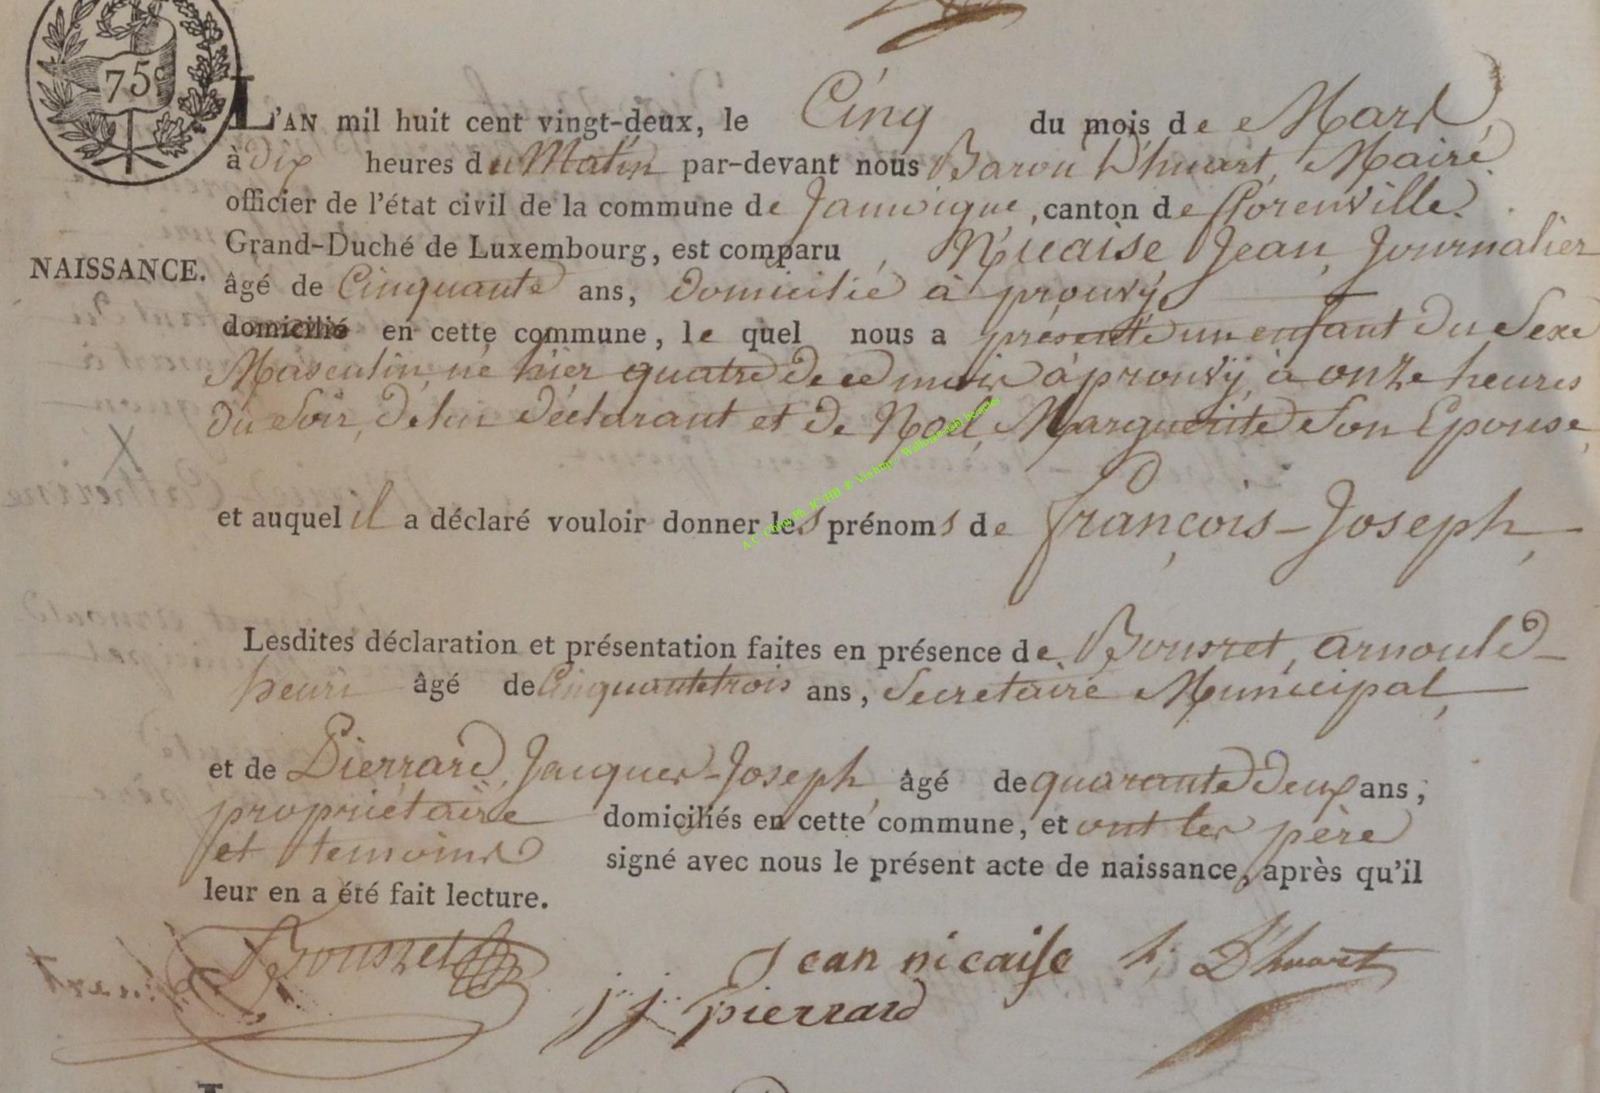 75c
L'AN mil huit cent vingt-deux, le Cinq du mois de Mars,
à dix heures du Matin par-devant nous Baron D'huart, Maire
officier de l'état civil de la commune de Jamoigne, canton de florenville.
Grand-Duché de Luxembourg, est comparu, Nicaise Jean, Journalier
NAISSANCE.
âgé de Cinquante ans, domicilié à prouvÿ
domicilié en cette commune, le quel nous a présenté un enfant du Sexe
Masculin, né hier quatre de ce mois à prouvÿ, à onze heures
du Soir, de lui déclarant et de Noël, Marguerite Son Epouse,
et auquel il a déclaré vouloir donner les prénoms de françois-Joseph,
Lesdites déclaration et présentation faites en présence de Bouszet, arnould-
henri âgé de Cinquante trois ans, Secretaire Municipal,
et de Pierrard, Jacques-Joseph, âgé de quarante deux ans,
propriétaire domiciliés en cette commune, et ont les père
et temoins signé avec nous le présent acte de naissance, après qu'il
leur en a été fait lecture.
Bouszet Jean nicaise h. D'huart
j. j. pierrard